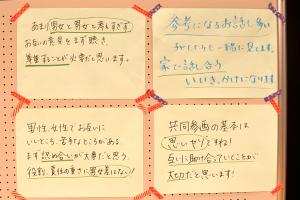 あまり男女と男女と考えすぎず
お互いの意見をまず聴き、
尊重することが必要だと思います。
参考になるお話し多い
家で話し合う
いいきっかけになります
男性、女性でお互いに
いいところ、苦手なところがある
まず認め合いが大事だと思う
役割、責任の重さに男女差はない!
共同参画の基本は
思いやりですね!
互いに助け合っていくことが
大切だと思います!